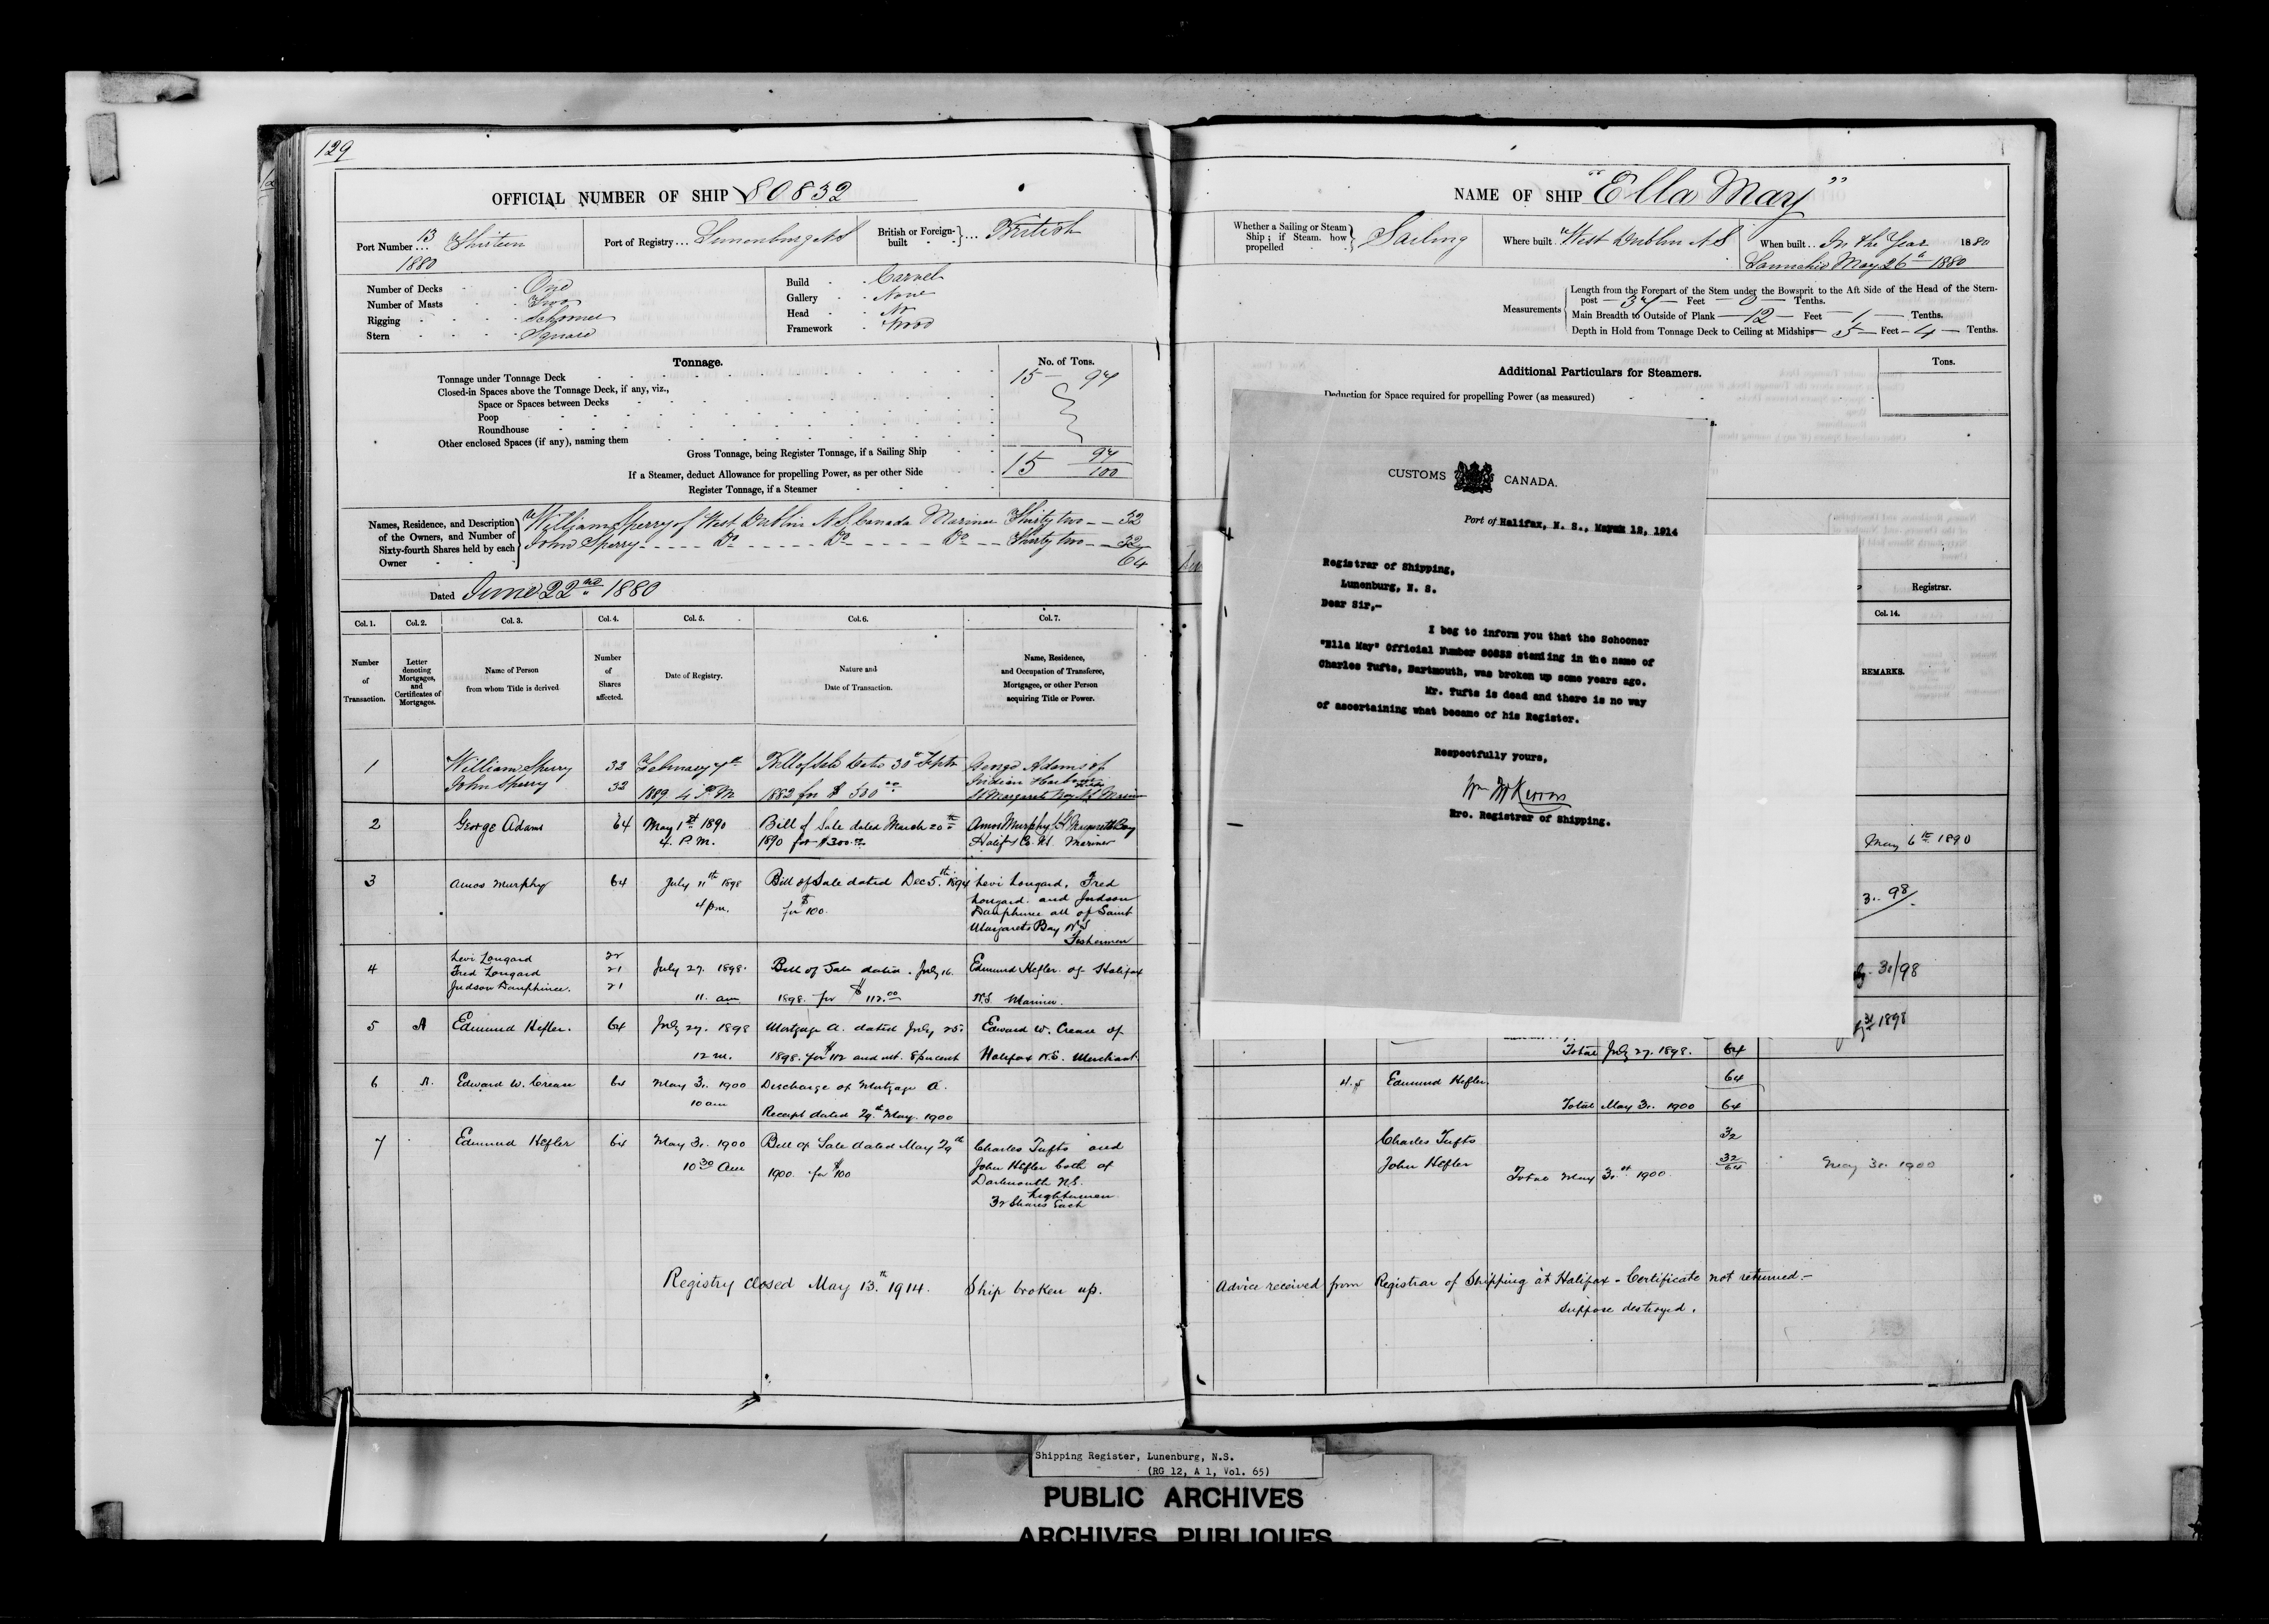 129
OFFICIAL NUMBER OF SHIP 80832
Port Number... 13 Thirteen
1880
Port of Registry... Lunenburg N S
British or Foreign-built } ... British
Number of Decks One
Number of Masts Two
Rigging Schooner
Stern Square
Build Carvel
Gallery None
Head No
Framework Wood
Tonnage.
No. of Tons.
Tonnage under Tonnage Deck 15 — 97
Closed-in Spaces above the Tonnage Deck, if any, viz.,
Space or Spaces between Decks
Poop
Roundhouse
Other enclosed Spaces (if any), naming them
Gross Tonnage, being Register Tonnage, if a Sailing Ship 15 97/100
If a Steamer, deduct Allowance for propelling Power, as per other Side
Register Tonnage, if a Steamer
Names, Residence, and Description of the Owners, and Number of Sixty-fourth Shares held by each Owner
William Sperry of West Dublin N S Canada Mariner Thirty two — 32
John Sperry Do Do Do Thirty two — 32
64
Dated June 22nd 1880
Col. 1. Col. 2. Col. 3. Col. 4. Col. 5. Col. 6. Col. 7.
Number of Transaction.
Letter denoting Mortgages, and Certificates of Mortgages.
Name of Person from whom Title is derived
Number of Shares affected.
Date of Registry.
Nature and Date of Transaction.
Name, Residence, and Occupation of Transferee, Mortgagee, or other Person acquiring Title or Power.
1 William Sperry 32 February 7th Bill of Sale Date 30th Septr George Adams of
John Sperry 32 1889 4 P.M. 1882 for $ 500.00 Indian Harbour
St Margarets Bay N S Mariner
2 George Adams 64 May 1st 1890 Bill of Sale dated March 20th Amos Murphy St Margarets Bay
4. P.M. 1890 for $300.00 Halifx Co. N.S. Mariner
3 Amos Murphy 64 July 11th 1898 Bill of Sale dated Dec 5th 1894 Levi Longard, Fred
4 pm. for $100. Longard. and Judson
Dauphinee all of Saint
Margarets Bay N S
Fishermen
4 Levi Longard 22
Fred Longard 21 July 27. 1898. Bill of Sale dated. July 16. Edmund Hefler. of Halifax
Judson Dauphinee. 21
11. am 1898. for $112.00 N.S. Mariner.
5 A Edmund Hefler. 64 July 27. 1898 Mortgage A. dated July 25. Edward W. Crease of
12 m. 1898. for $112 and int. 8 per cent Halifax N.S. Merchant.
6 A. Edward W. Crease 64 May 31. 1900 Discharge of Mortgage A.
10 am Receipt dated 29th May. 1900
7 Edmund Hefler 64 May 31. 1900 Bill of Sale dated May 29th Charles Tufts and
10 30 Am 1900. for $100 John Hefler both of
Dartmouth N.S.
Lightermen
32 Shares Each
Registry closed May 13th. 1914. Ship broken up.
NAME OF SHIP "Ella May"
Whether a Sailing or Steam Ship; if Steam, how propelled } Sailing
Where built West Dublin N S
When built.. In the Year 1880
Launched May 26th 1880
Measurements
Length from the Forepart of the Stem under the Bowsprit to the Aft Side of the Head of the Stern-
post — 37 — Feet — 0 — Tenths.
Main Breadth to Outside of Plank — 12 — Feet — 1 — Tenths.
Depth in Hold from Tonnage Deck to Ceiling at Midships — 5 — Feet — 4 — Tenths.
Additional Particulars for Steamers.
Tons.
Deduction for Space required for propelling Power (as measured)
CUSTOMS CANADA.
Port of Halifax, N. S., March 12, 1914
Registrar of Shipping,
Lunenburg, N. S.
Dear Sir,-
I beg to inform you that the Schooner
"Ella May" Official Number 80832 standing in the name of
Charles Tufts, Dartmouth, was broken up some years ago.
Mr. Tufts is dead and there is no way
of ascertaining what became of his Register.
Respectfully yours,
Pro. Registrar of Shipping.
Registrar.
Col. 14.
REMARKS.
May 6th 1890
3.. 98
31/98
31st 1898
Total July 27. 1898. 64
4.5 Edmund Hefler. 64
Total May 31. 1900 64
Charles Tufts 32
John Hefler 32
64
Total May 31st 1900.
May 31. 1900
Advice received from Registrar of Shipping at Halifax - Certificate not returned.-
Suppose destroyed.
Shipping Register, Lunenburg, N.S.
(RG 12, A 1, Vol. 65)
PUBLIC ARCHIVES
ARCHIVES PUBLIQUES